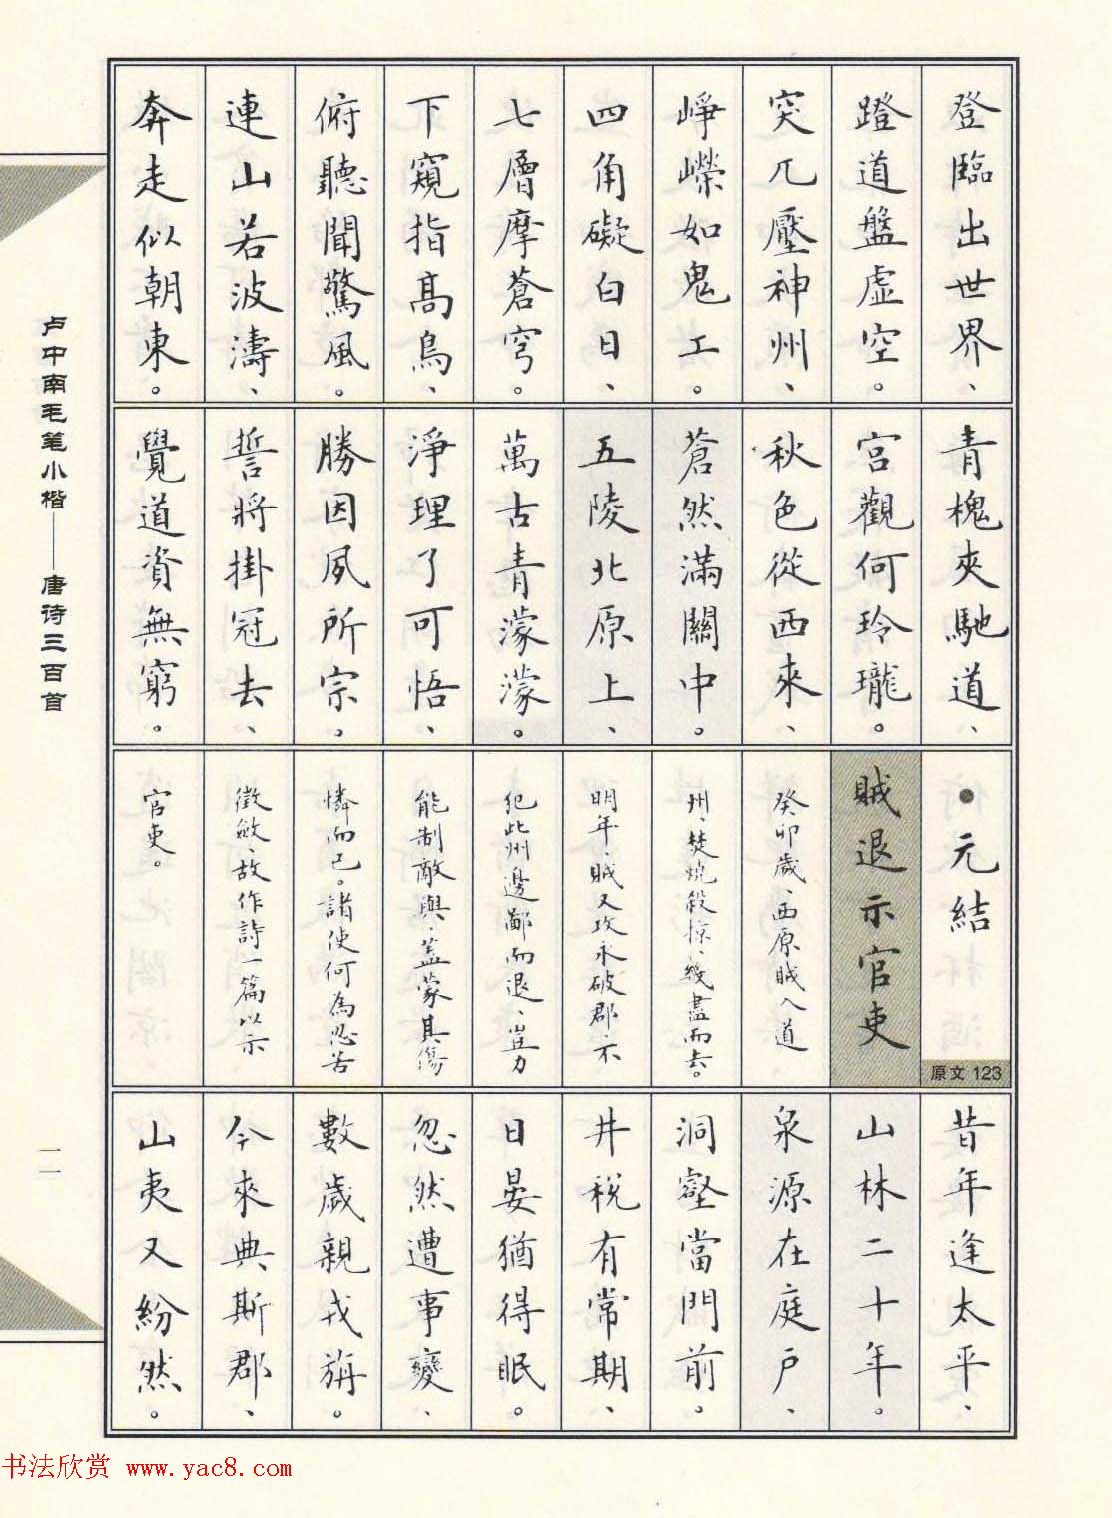 登臨出世界、
蹬道盤虛空。
突兀壓神州、
崢嶸如鬼工。
四角礙白日、
七層摩蒼穹。
下窺指高鳥、
俯聽聞驚風。
連山若波濤、
奔走似朝東。
青槐夾馳道、
宮觀何玲瓏。
秋色從西來、
蒼然滿關中。
五陵北原上、
萬古青濛濛。
淨理了可悟、
勝因夙所宗。
誓將掛冠去、
覺道資無窮。
●元結
原文 123
賊退示官吏
癸卯歲、西原賊入道
州、焚燒殺掠、幾盡而去。
明年、賊又攻永破郡、不
犯此州邊鄙而退、豈力
能制敵與、蓋蒙其傷
憐而已。諸使何為忍苦
徵斂、故作詩一篇以示
官吏。
昔年逢太平、
山林二十年。
泉源在庭戶、
洞壑當門前。
井稅有常期、
日晏猶得眠。
忽然遭事變、
數歲親戎旃。
今來典斯郡、
山夷又紛然。
卢中南毛笔小楷——唐诗三百首
一一
书法欣赏 www.yac8.com